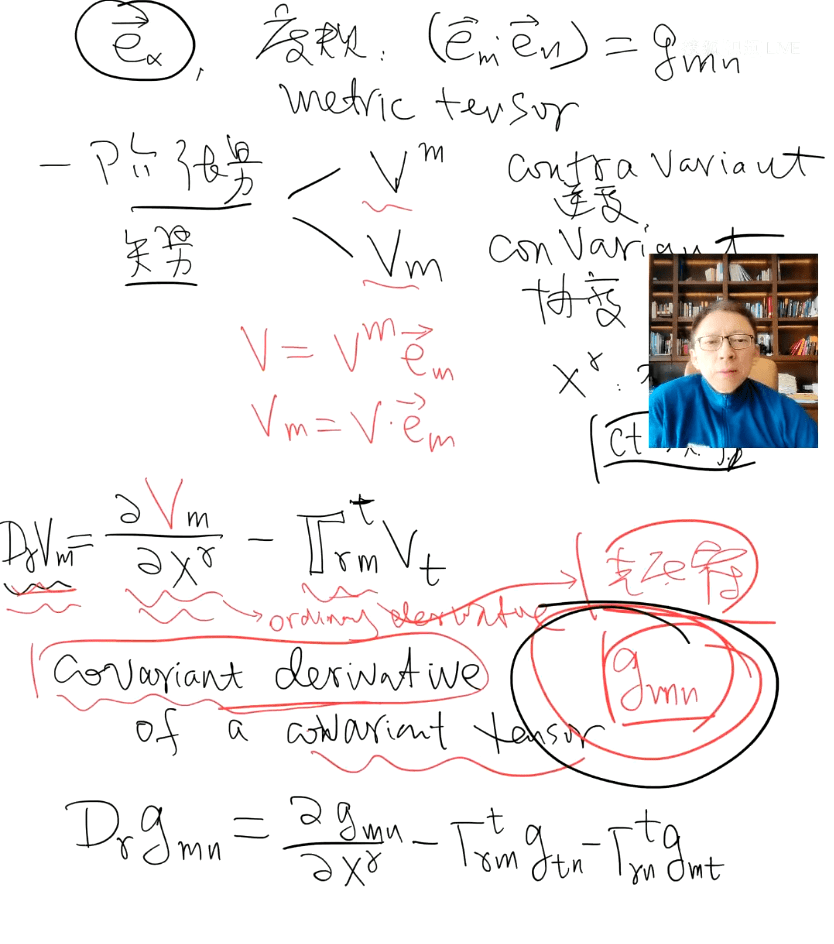 e⃗α, 度规: (e⃗m·e⃗n) = gmn
metric tensor
一阶张量 V^m contra variant
逆变
矢量 Vm conVariant
协变
V = V^m e⃗m
Vm = V·e⃗m
x^r :
ct
DrVm = ∂Vm/∂x^r − Γ^t_rm Vt
ordinary derivative
克氏符
covariant derivative
gmn
of a covariant tensor
Dr gmn = ∂gmn/∂x^r − Γ^t_rm gtn − Γ^t_rn gmt